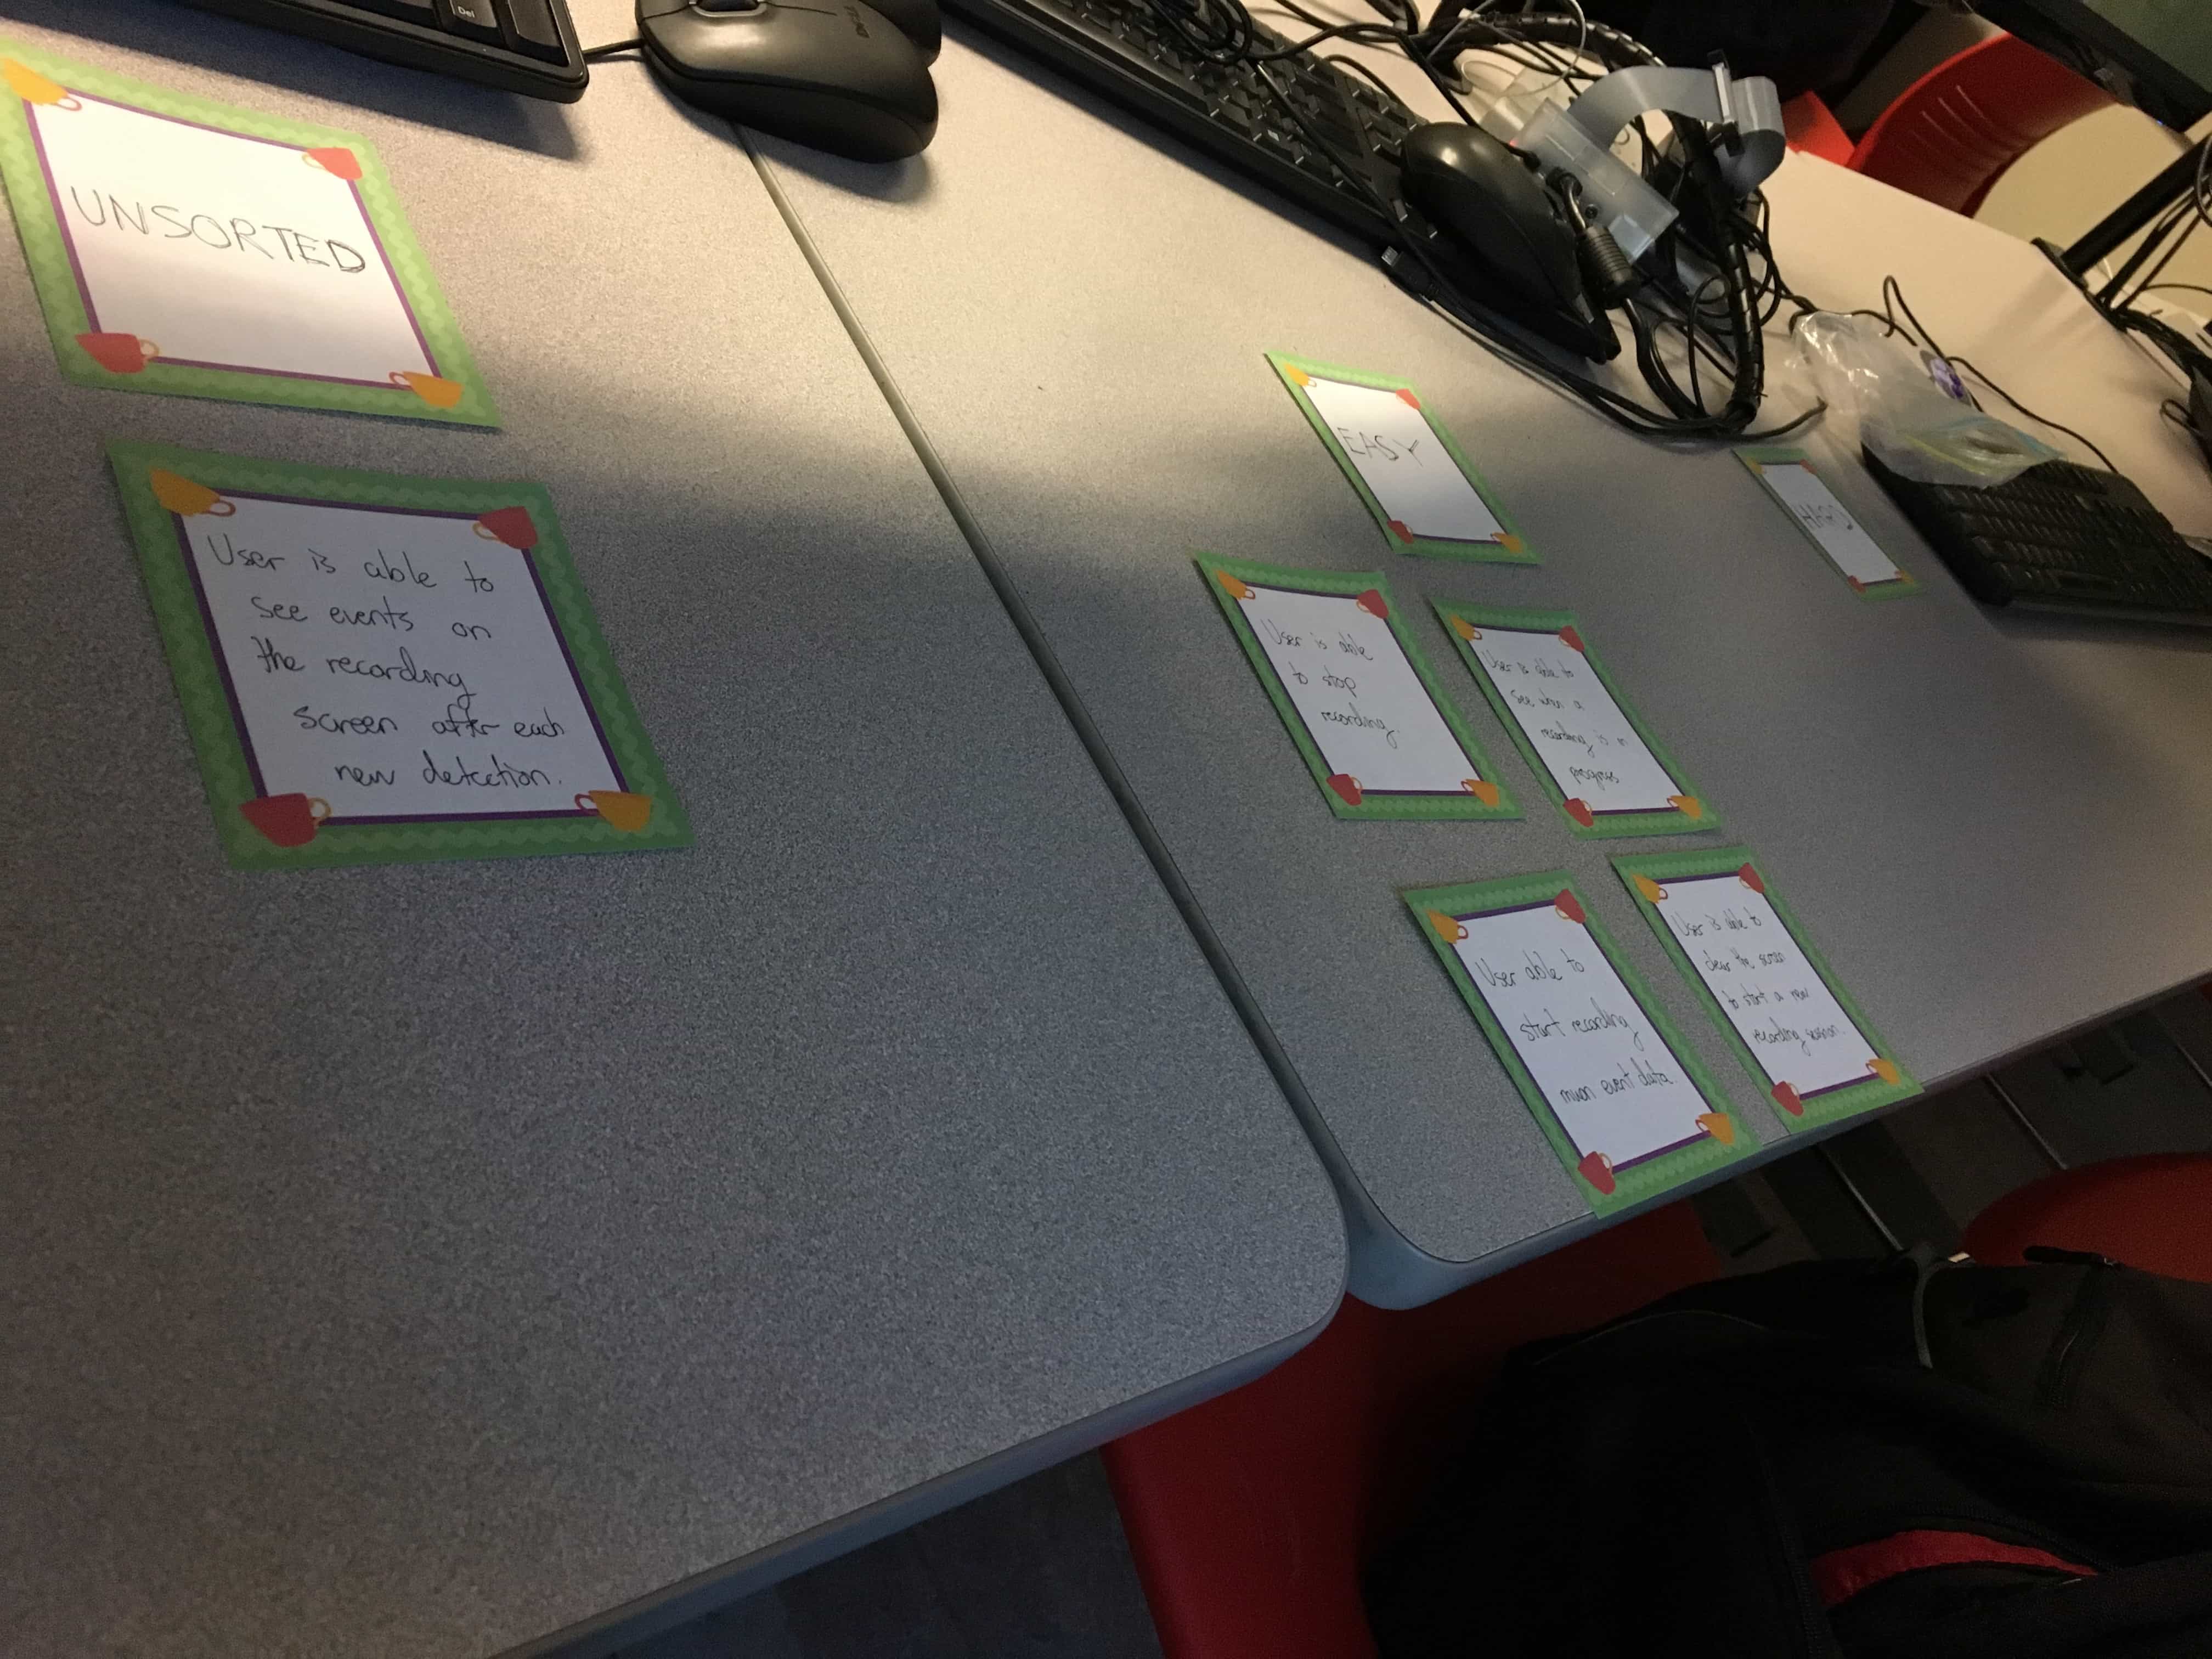 Del
DELL
UNSORTED
User is able to
see events on
the recording
screen after each
new detection.
EASY
User is able
to stop
recording.
User is able to
see when a
recording is in
progress
User able to
start recording
muon event data.
User is able to
clear the screen
to start a new
recording session.
HARD